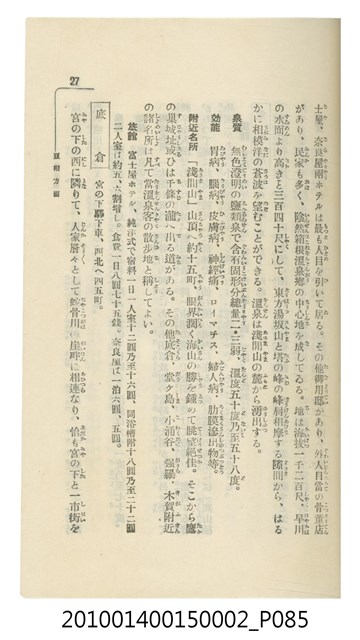 27
豆相方面
士屋、奈良屋兩ホテルは最も人目を引いて居る。その他御用邸があり、外人目當の骨董店
があり、民家も多く、陰然箱根溫泉鄕の中心地を成してゐる。地は海拔一千二百尺、早川
の水面より高きこと三百四十尺にして、東方湯坂山と塔の峰の峰肩相摩する隙間から、はる
かに相模洋の蒼波を望むことができる。溫泉は淺間山の麓から湧出する。
泉質 無色澄明の鹽類泉で含有固形分總量二・三弱。溫度五十度乃至五十八度。
効能 胃病、腦病、皮膚病、神經痛、ロイマチス、婦人病、肋膜滲出物等。
附近名所 「淺間山」山頂へ約十五町。眼界濶く海山の勝を鍾めて眺望絕佳。そこから鷹
の巢城址或ひは千條ノ瀧へ出る道がある。その他底倉、堂ケ島、小涌谷、强羅、木賀附近
の諸名所は凡て當溫泉客の散步地と稱してよい。
旅館 富士屋ホテル、純洋式で宿料一日一人室十二圓乃至十六圓、同浴槽附十八圓乃至二十二圓
二人室は約五、六割增し。食費一日八圓七十五錢。奈良屋は一泊六圓、五圓。
底倉 宮の下驛下車、西北へ四五町。
宮の下の西に隣りて、人家層々として蛇骨川の崖畔に相連なり、恰も宮の下と一市街を
201001400150002_P085